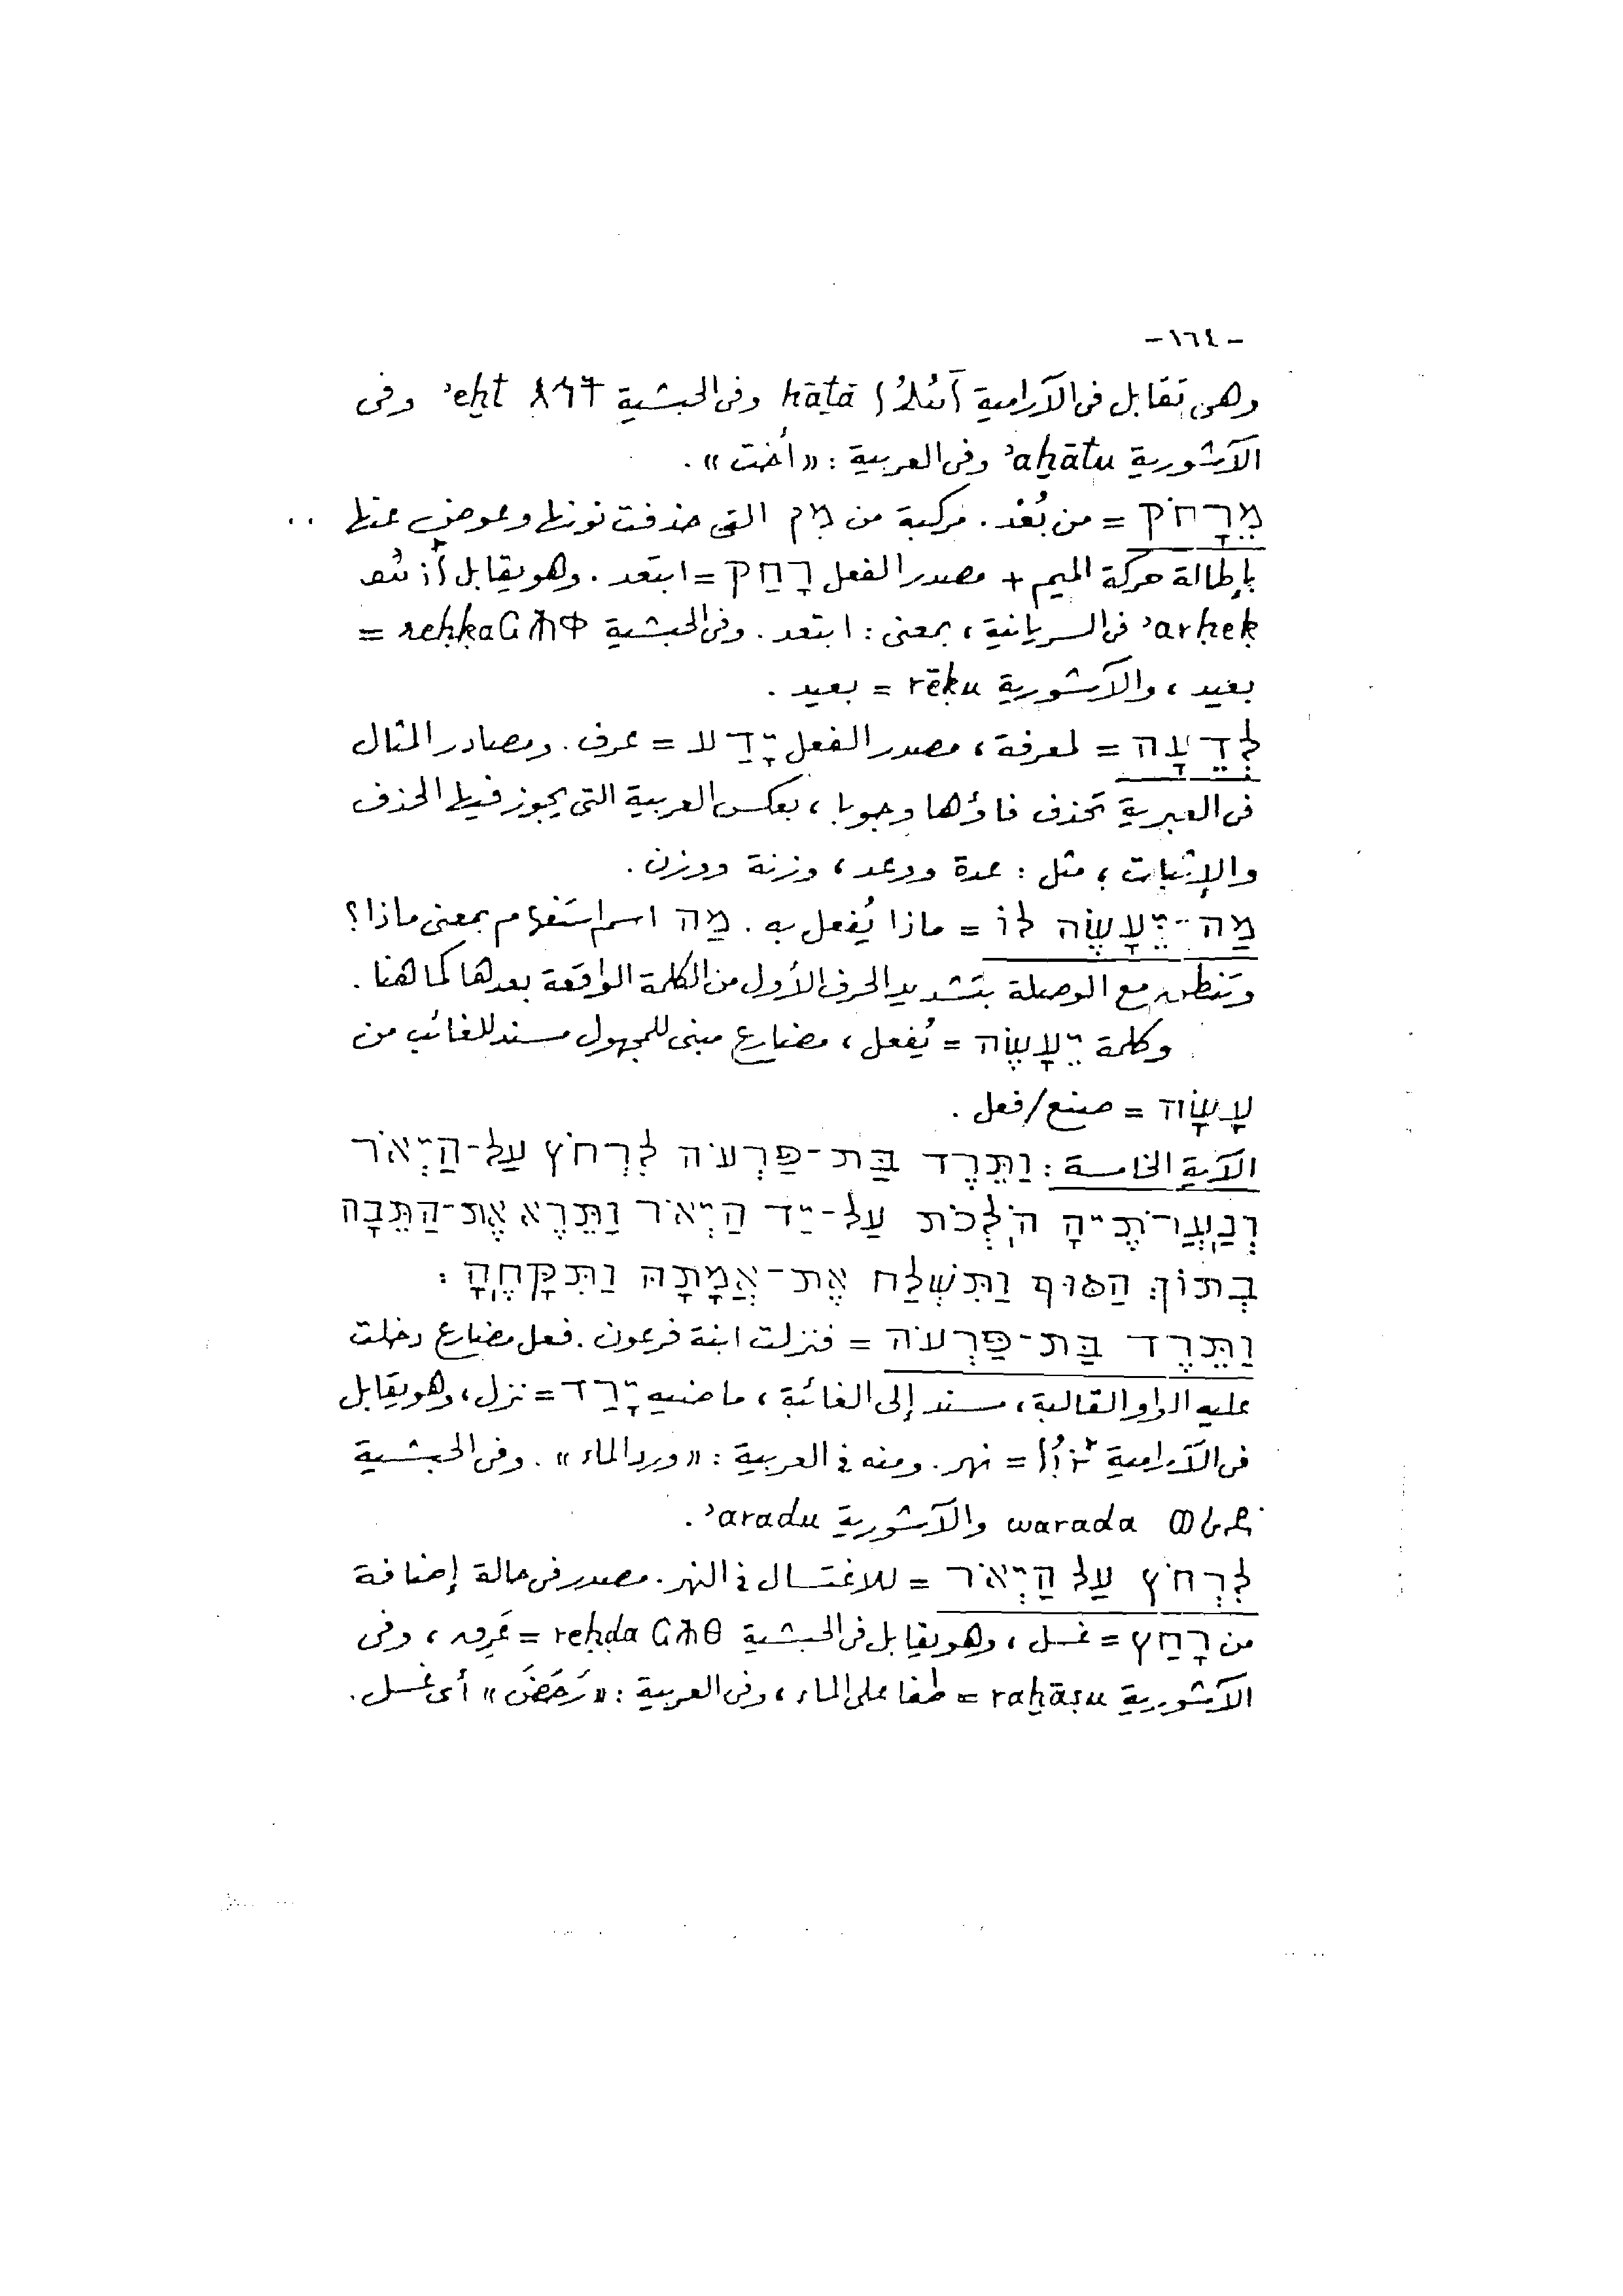 -١٦٤-
وهى تقابل فى الآرامية ḥātā وفى الحبشية እኅት ’eḫt وفى
الآشورية ’aḫātu وفى العربية : «أخت» .
מֵרָחֹק = من بُعْد . مركبة من מִן التى حذفت نونها وعوض عنها
بإطالة حركة الميم + مصدر الفعل רָחַק = ابتعد . وهو يقابل
’arḥeḳ فى السريانية ، بمعنى : ابتعد . وفى الحبشية ርሕቀ reḥḳa =
بعيد ، والآشورية rēḳu = بعيد .
לְדֵעָה = لمعرفة ، مصدر الفعل יָדַע = عرف . ومصادر المثال
فى العبرية تحذف فاؤها وجوبا ، بعكس العربية التى يجوز فيها الحذف
والإثبات ؛ مثل : عدة ووعد ، وزنة ووزن .
מַה-יֵּעָשֶׂה לוֹ = ماذا يُفعل به . מַה اسم استفهام بمعنى ماذا ؟
وتنطق مع الوصلة بتشديد الحرف الأول من الكلمة الواقعة بعدها كما هنا .
وكلمة יֵּעָשֶׂה = يُفعل ، مضارع مبنى للمجهول مسند للغائب من
עָשָׂה = صنع/فعل .
الآية الخامسة : וַתֵּרֶד בַּת-פַּרְעֹה לִרְחֹץ עַל-הַיְאֹר
וְנַעֲרֹתֶיהָ הֹלְכֹת עַל-יַד הַיְאֹר וַתֵּרֶא אֶת-הַתֵּבָה
בְּתוֹךְ הַסּוּף וַתִּשְׁלַח אֶת-אֲמָתָהּ וַתִּקָּחֶהָ :
וַתֵּרֶד בַּת-פַּרְעֹה = فنزلت ابنة فرعون . فعل مضارع دخلت
عليه الواو القالبة ، مسند إلى الغائبة ، ماضيه יָרַד = نزل ، وهو يقابل
فى الآرامية = نهر . ومنه فى العربية : «ورد الماء» . وفى الحبشية
ወረደ warada والآشورية ’aradu .
לִרְחֹץ עַל הַיְאֹר = للاغتسال فى النهر . مصدر فى حالة إضافة
من רָחַץ = غسل ، وهو يقابل فى الحبشية ርሕፀ reḥḍa = عَرِق ، وفى
الآشورية raḫāṣu = طفا على الماء ، وفى العربية : «رَحَضَ» أى غسل .